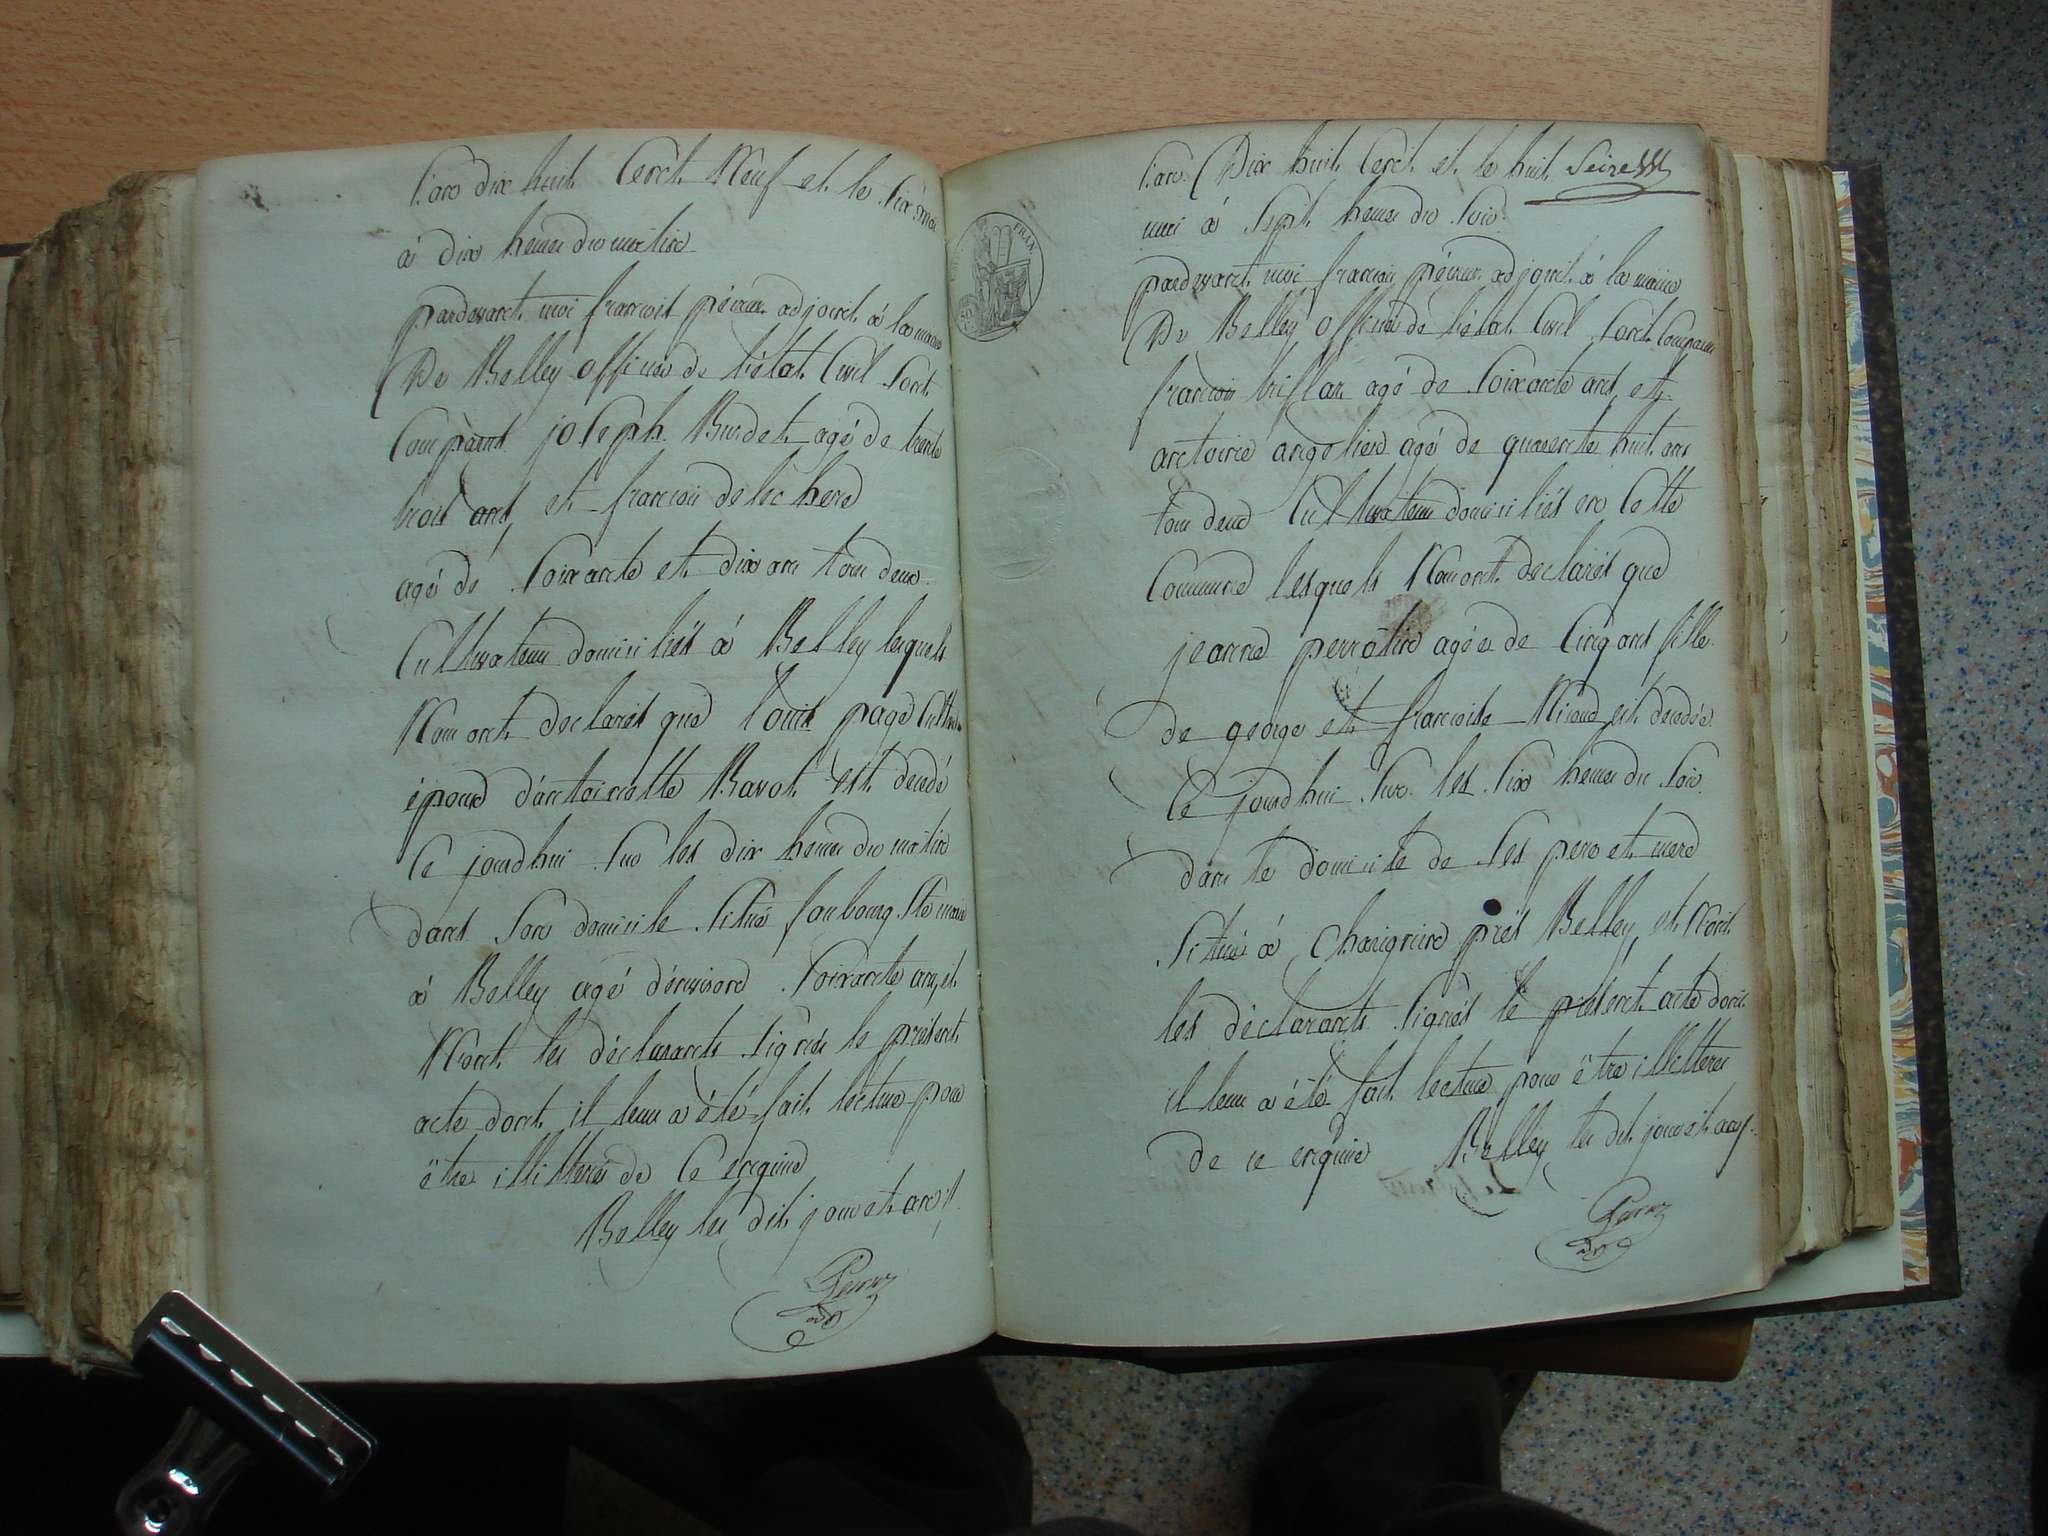 L'an dix huit Cent Neuf et le Six mai
à dix heures du matin
pardevant moi françois adjoint à la mairie
De Belley officier de l'état Civil Sont
Comparus joseph Burdet agé de trente
trois ans et françois delechere
agé de Soixante et dix ans tous deux
Cultivateurs domiciliés à Belley lesquels
Nous ont declarés que Louis page
épous d'antoinette Bavot est decedé
Ce jourdhui Sur les dix heures du matin
dans Son domicile Situé faubourg Ste marie
à Belley agé d'environ Soixante ans et
N'ont les déclarants Signés le présent
acte dont il leur a été fait lecture pour
être illitterés de Ce enquis
Belley les dit jour et an
L'an Dix huit Cent et le huit
mai à Sept heures du Soir
pardevant moi françois adjoint à la mairie
De Belley officier de l'état Civil Sont Comparus
françois agé de Soixante ans et
antoine angelier agé de quarente huit ans
tous deux Cultivateurs domiciliés en Cette
Commune lesquels Nous ont declarés que
jeanne perratin agée de Cinq ans fille
de george et françoise est decedée
Ce jourdhui Sur les Six heures du Soir
dans le domicile de Ses pere et mere
Situé à près Belley et N'ont
les déclarants Signés le présent acte dont
il leur a été fait lecture pour être illetterés
de ce enquis Belley les dit jour et an